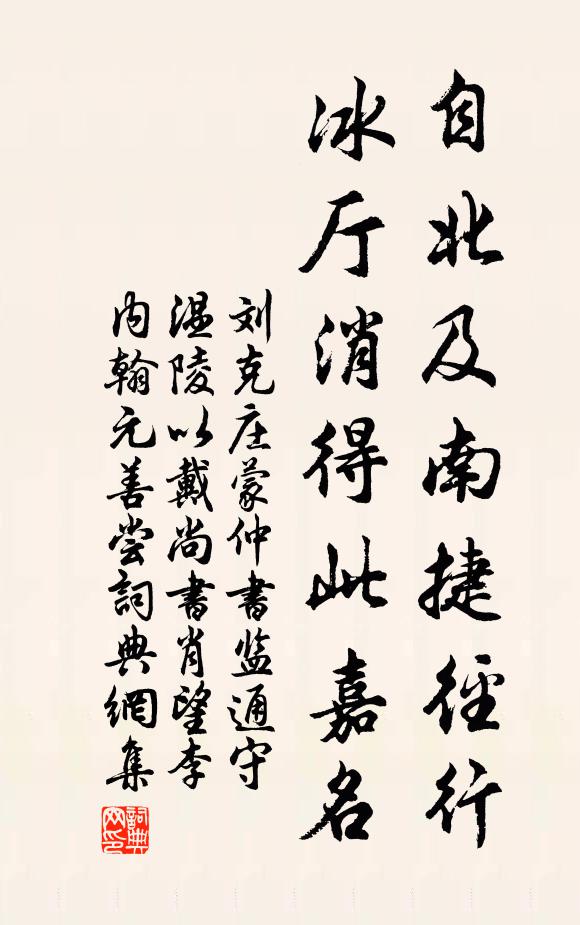 自北及南捷径行
冰厅消得此嘉名
刘克庄蒙仲书监通守
温陵以戴尚书肖望李
内翰元善尝詞典網集
詞典网印